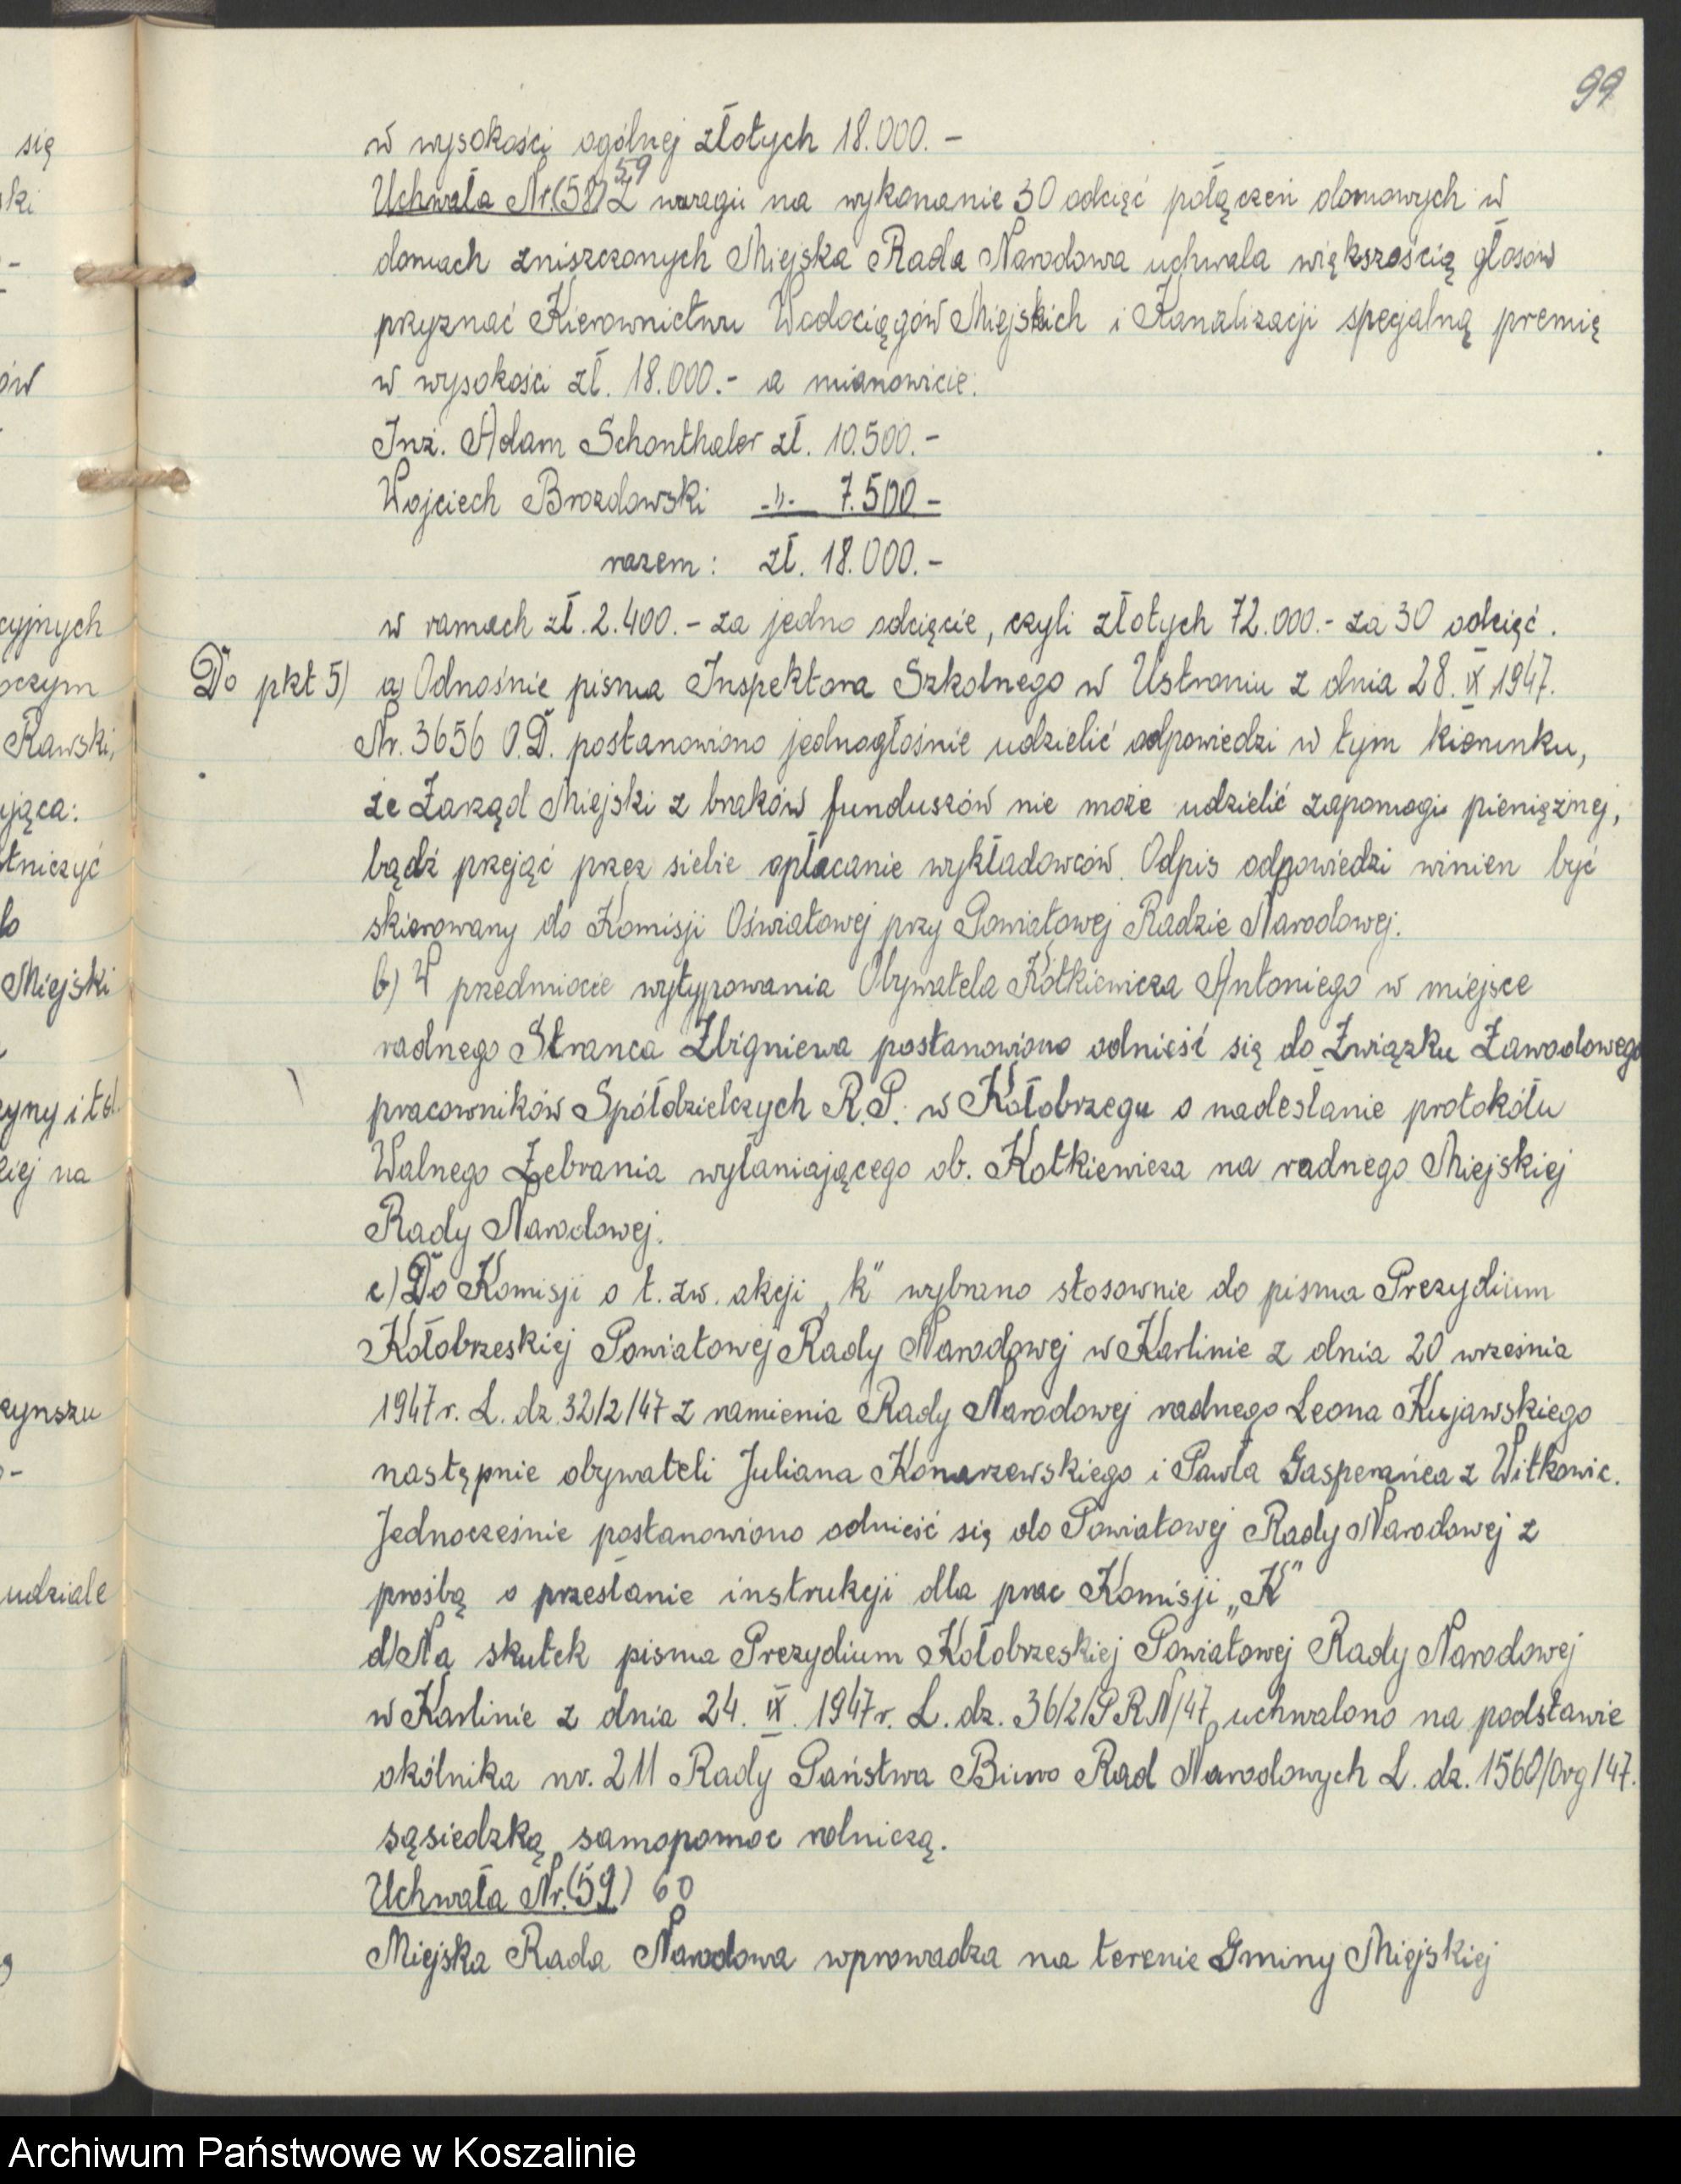 99
w wysokości ogólnej złotych 18.000.-
59
Uchwała Nr.(58) Z uwagi na wykonanie 30 odcięć połączeń domowych w
domach zniszczonych Miejska Rada Narodowa uchwala większością głosów
przyznać Kierownictwu Wodociągów Miejskich i Kanalizacji specjalną premię
w wysokości zł. 18.000.- a mianowicie:
Inż. Adam Schonthaler zł. 10.500.-
Wojciech Brozdowski -"- 7.500-
razem: zł. 18.000.-
w ramach zł. 2.400.- za jedno odcięcie, czyli złotych 72.000.- za 30 odcięć.
Do pkt 5) a) Odnośnie pisma Inspektora Szkolnego w Ustroniu z dnia 28. IX 1947.
Nr. 3656 O.D. postanowiono jednogłośnie udzielić odpowiedzi w tym kierunku,
że Zarząd Miejski z braków funduszów nie może udzielić zapomogi pieniężnej,
bądź przejąć przez siebie opłacanie wykładowców. Odpis odpowiedzi winien być
skierowany do Komisji Oświatowej przy Powiatowej Radzie Narodowej.
b) W przedmiocie wytypowania Obywatela Kotkiewicza Antoniego w miejsce
radnego Stranca Zbigniewa postanowiono odnieść się do Związku Zawodowego
pracowników Spółdzielczych R.P. w Kołobrzegu o nadesłanie protokółu
Walnego Zebrania wyłaniającego ob. Kotkiewicza na radnego Miejskiej
Rady Narodowej.
c) Do Komisji o t. zw. akcji „k" wybrano stosownie do pisma Prezydium
Kołobrzeskiej Powiatowej Rady Narodowej w Karlinie z dnia 20 września
1947 r. L. dz. 32/2/47 z ramienia Rady Narodowej radnego Leona Kujawskiego
następnie obywateli Juliana Konarzewskiego i Pawła Gasperańca z Witkowic.
Jednocześnie postanowiono odnieść się do Powiatowej Rady Narodowej z
prośbą o przesłanie instrukcji dla prac Komisji „K"
d) Na skutek pisma Prezydium Kołobrzeskiej Powiatowej Rady Narodowej
w Karlinie z dnia 24. IX. 1947 r. L. dz. 36/2/PRN/47 uchwalono na podstawie
okólnika nr. 211 Rady Państwa Biuro Rad Narodowych L. dz. 1560/Org/47.
sąsiedzką samopomoc rolniczą.
Uchwała Nr.(59) 60
Miejska Rada Narodowa wprowadza na terenie Gminy Miejskiej
się
ski
ów
cyjnych
oczym
Rawski,
ująca:
tniczyć
Miejski
zyny i td.
kiej na
zynszu
udziale
Archiwum Państwowe w Koszalinie